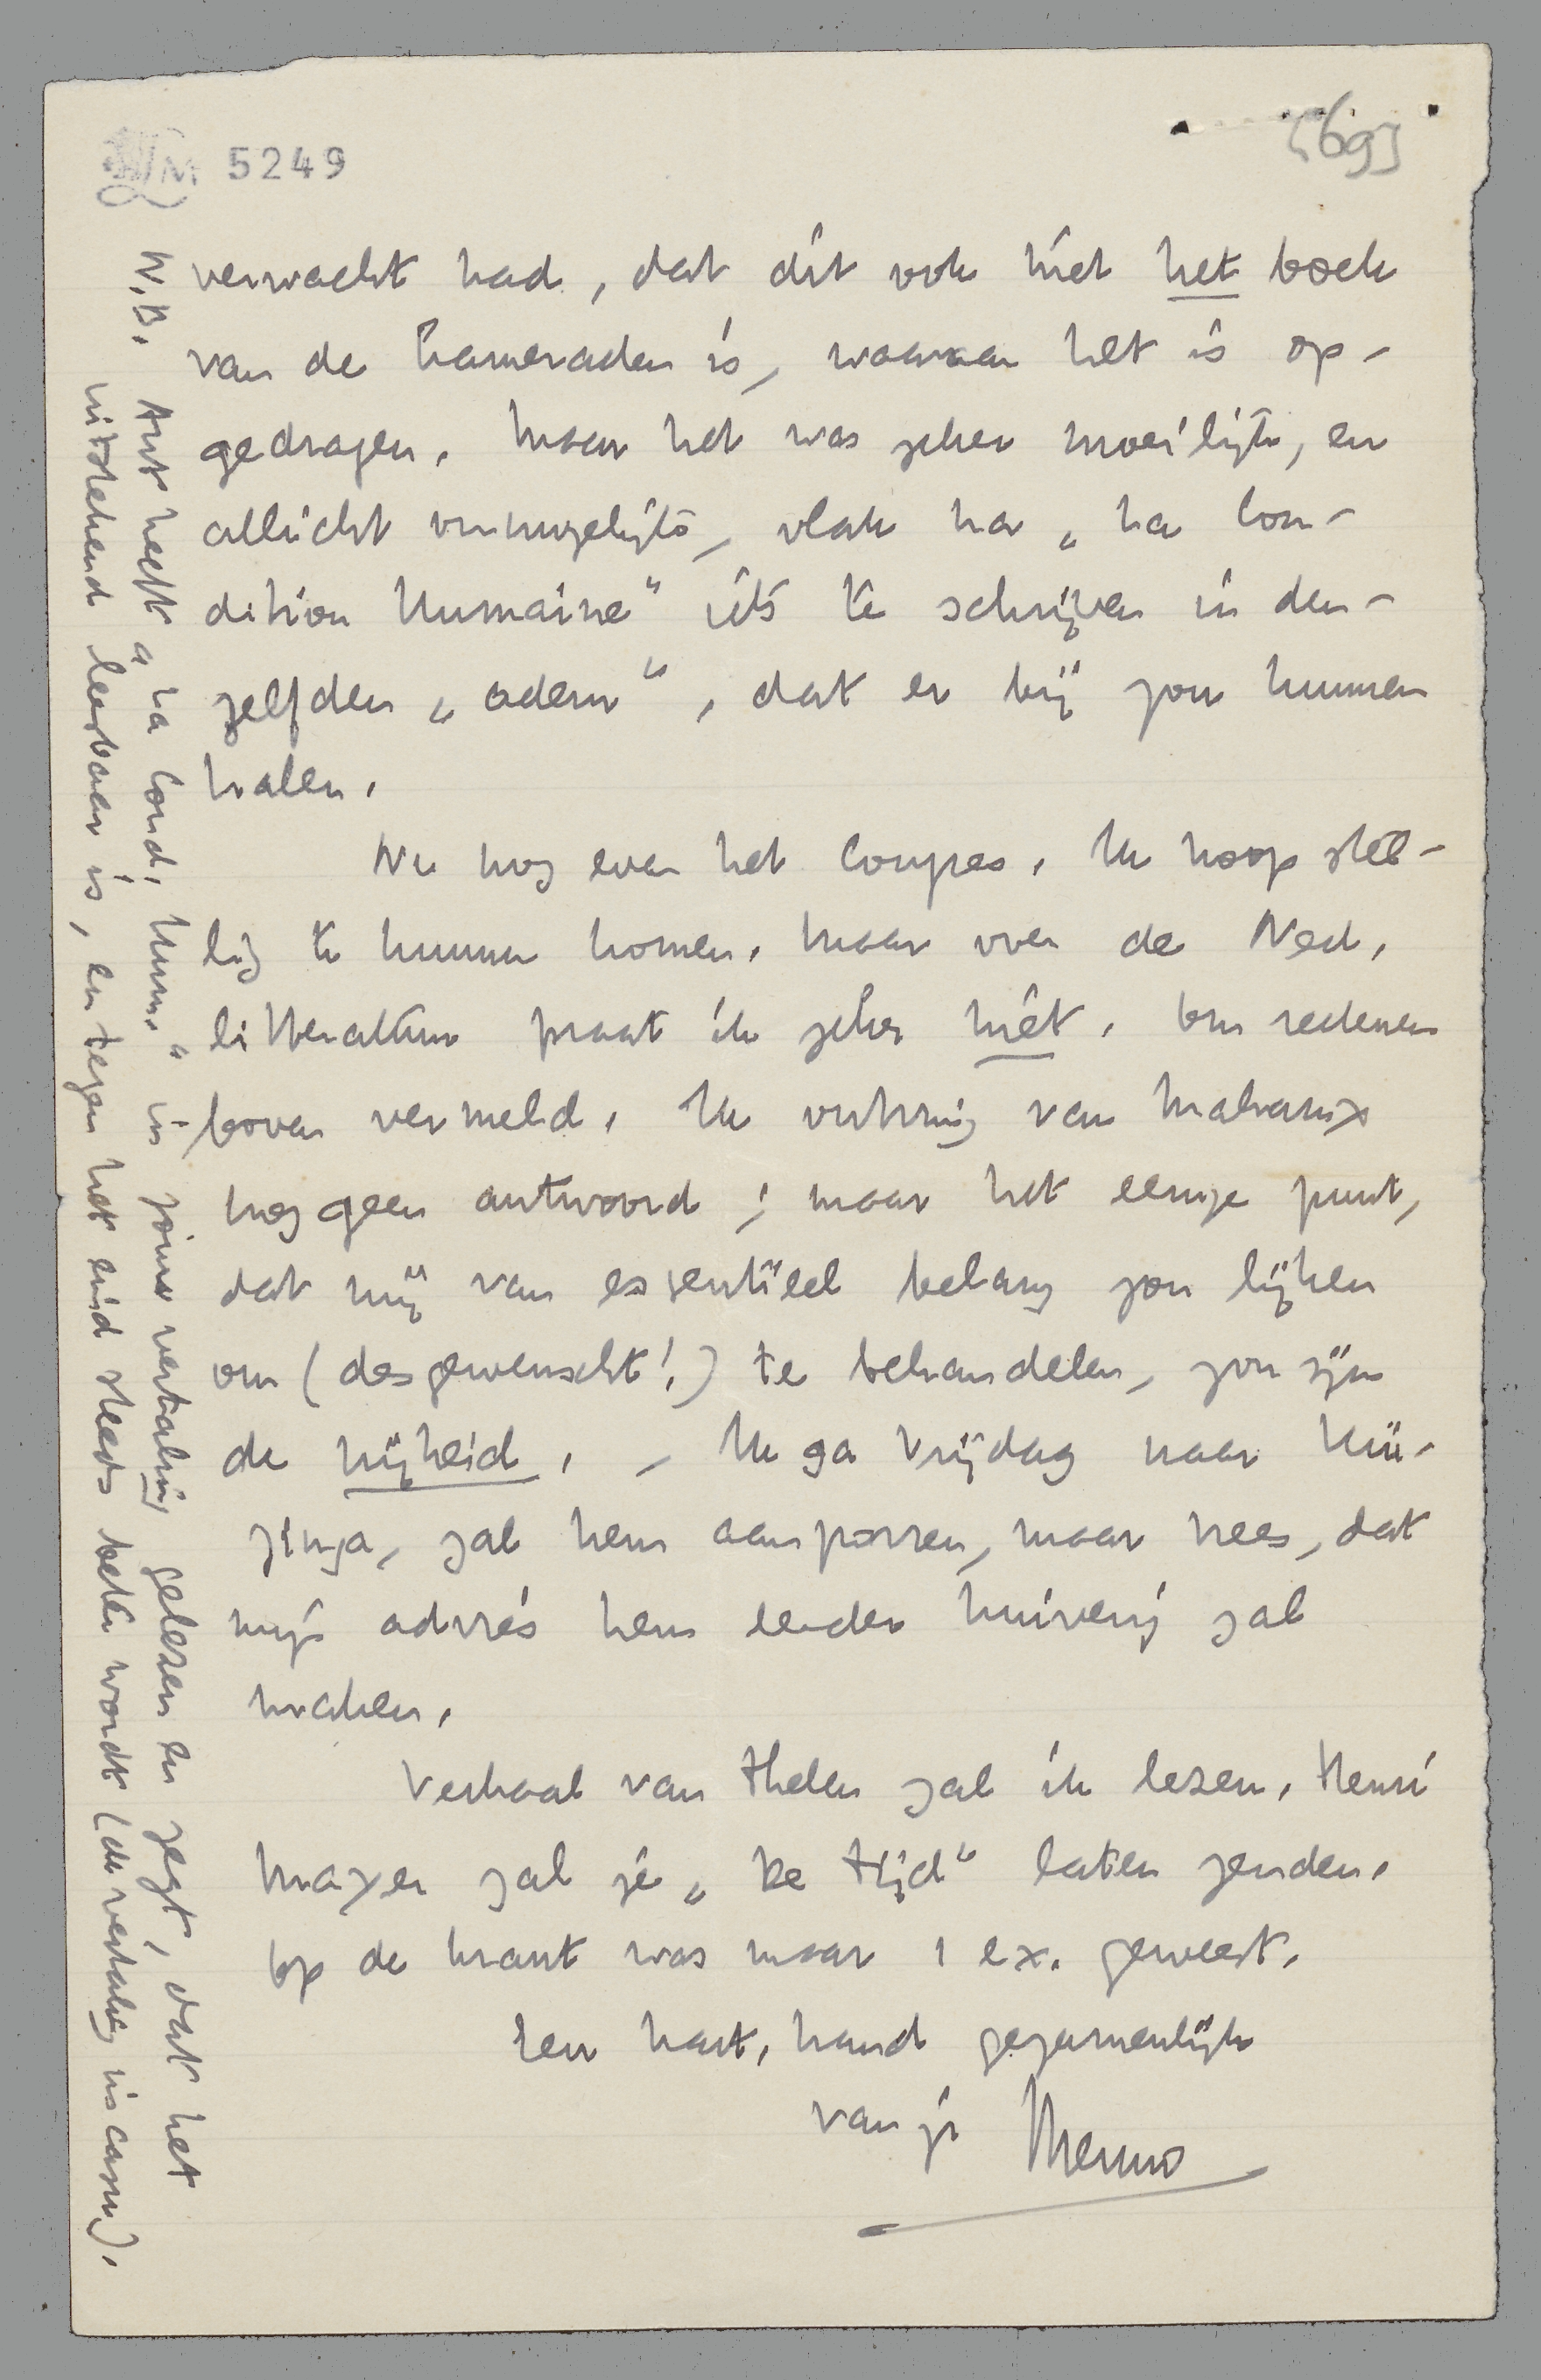 LM 5249
[69]
verwacht had, dat dit ook niet het boek
van de kameraden is, waaraan het is op-
gedragen. Maar het was zeker moeilijk, en
allicht onmogelijk, vlak na „La Con-
dition Humaine" iets te schrijven in den-
zelfden „adem", dat er bij zou kunnen
halen.
Nu nog even het Congres. Ik hoop stel-
lig te kunnen komen. Maar over de Ned.
litteratuur praat ik zeker niet. Om redenen
boven vermeld. Ik ontving van Malraux
nog geen antwoord; maar het eenige punt,
dat mij van essentieel belang zou lijken
om (desgewenscht!) te behandelen, zou zijn
de vrijheid. – Ik ga Vrijdag naar Hui-
zinga, zal hem aanporren, maar vrees, dat
mijn advies hem eerder huiverig zal
maken.
Verhaal van Thelen zal ik lezen. Henri
Mayer zal je „De Tijd" laten zenden.
Op de krant was maar 1 ex. geweest.
Een hart. hand gezamenlijk
van je Menno
N.B. Ant heeft „La Cond. Hum." in jouw vertaling gelezen en zegt, dat het
uitstekend leesbaar is, en tegen het eind steeds beter wordt (de vertaling in casu).